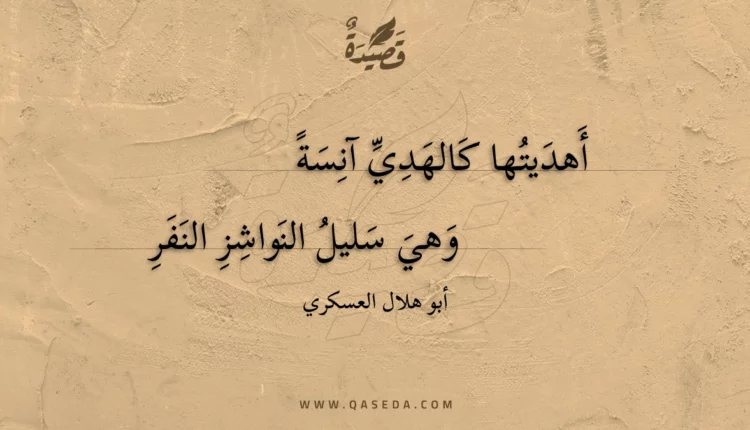 قَصِيدَةٌ
أَهدَيتُها كَالهَدِيِّ آنِسَةً
وَهيَ سَليلُ النَواشِزِ النَفَرِ
أبو هلال العسكري
WWW.QASEDA.COM